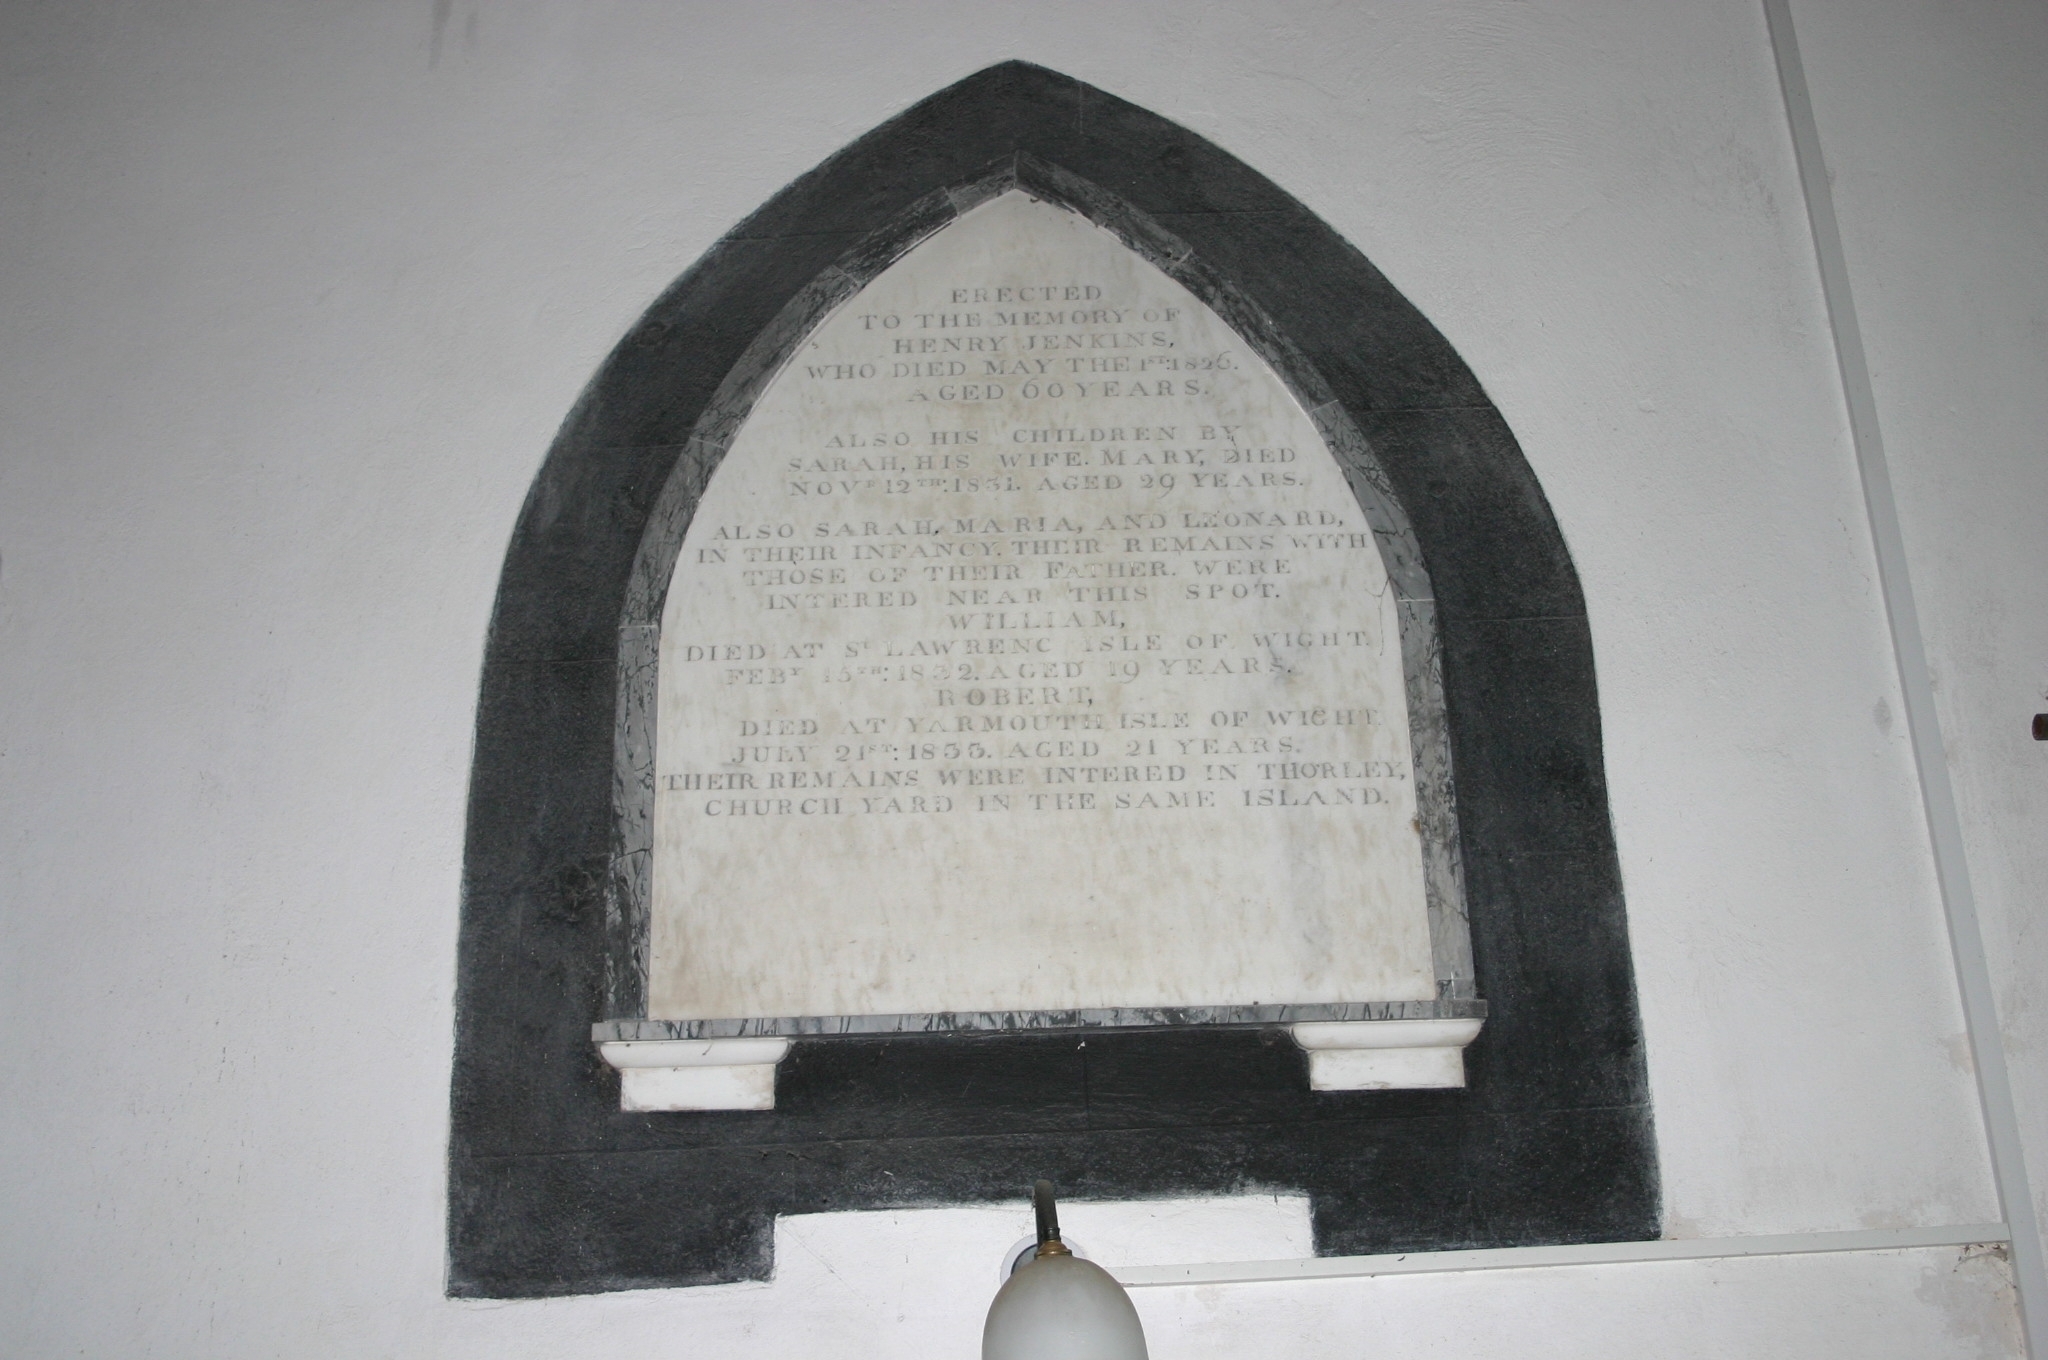 ERECTED
TO THE MEMORY OF
HENRY JENKINS,
WHO DIED MAY THE 1ST: 1826.
AGED 60 YEARS.
ALSO HIS CHILDREN BY
SARAH, HIS WIFE. MARY, DIED
NOVR 12TH: 1831. AGED 29 YEARS.
ALSO SARAH, MARIA, AND LEONARD,
IN THEIR INFANCY. THEIR REMAINS WITH
THOSE OF THEIR FATHER. WERE
INTERED NEAR THIS SPOT.
WILLIAM,
DIED AT ST LAWRENC ISLE OF WIGHT.
FEBY 15TH: 1832. AGED 19 YEARS.
ROBERT,
DIED AT YARMOUTH ISLE OF WIGHT
JULY 21ST: 1833. AGED 21 YEARS.
THEIR REMAINS WERE INTERED IN THORLEY,
CHURCH YARD IN THE SAME ISLAND.